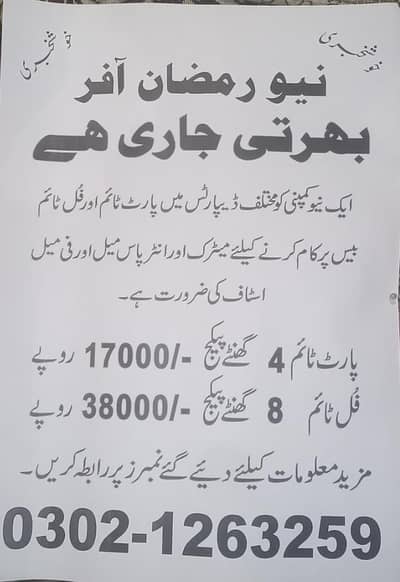 خوشخبری
خوشخبری
نیو رمضان آفر
بھرتی جاری ھے
ایک نیو کمپنی کو مختلف ڈیپارٹس میں پارٹ ٹائم اور فُل ٹائم
بیس پر کام کرنے کیلئے میٹرک اور انٹر پاس میل اور فی میل
اسٹاف کی ضرورت ہے۔
پارٹ ٹائم 4 گھنٹے پیکج -/17000 روپے
فُل ٹائم 8 گھنٹے پیکج -/38000 روپے
مزید معلومات کیلئے دیئے گئے نمبرز پر رابطہ کریں۔
0302-1263259